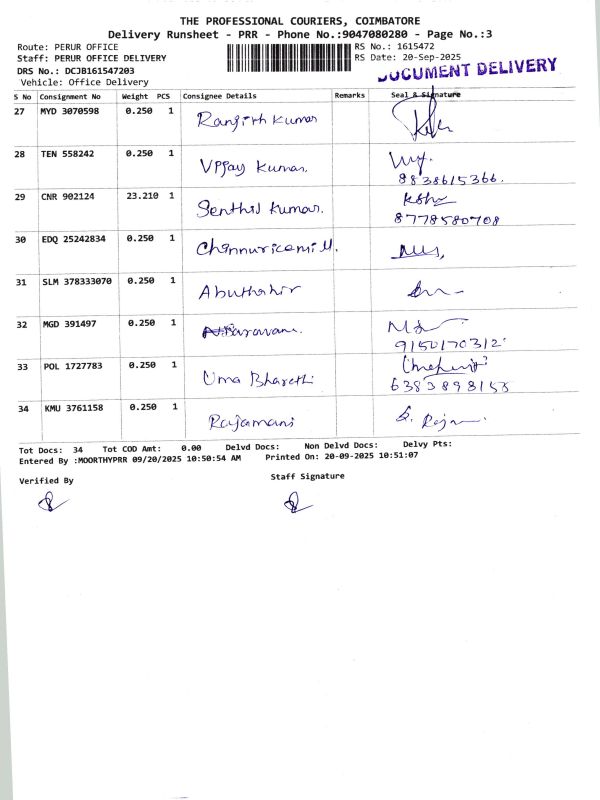 THE PROFESSIONAL COURIERS, COIMBATORE
Delivery Runsheet - PRR - Phone No.:9047080280 - Page No.:3
Route: PERUR OFFICE
RS No.: 1615472
Staff: PERUR OFFICE DELIVERY
RS Date: 20-Sep-2025
DRS No.: DCJB161547203
DOCUMENT DELIVERY
Vehicle: Office Delivery
S No Consignment No Weight PCS Consignee Details Remarks Seal & Signature
27 MYD 3070598 0.250 1 Ranjith Kumar
28 TEN 558242 0.250 1 Vijay Kumar.
8838615366.
29 CNR 902124 23.210 1 Senthil Kumar.
8778580708
30 EDQ 25242834 0.250 1
31 SLM 378333070 0.250 1 Abuthahir
32 MGD 391497 0.250 1
9150170312
33 POL 1727783 0.250 1 Uma Bharathi
34 KMU 3761158 0.250 1 Rajamani
Tot Docs: 34 Tot COD Amt: 0.00 Delvd Docs: Non Delvd Docs: Delvy Pts:
Entered By :MOORTHYPRR 09/20/2025 10:50:54 AM Printed On: 20-09-2025 10:51:07
Verified By
Staff Signature